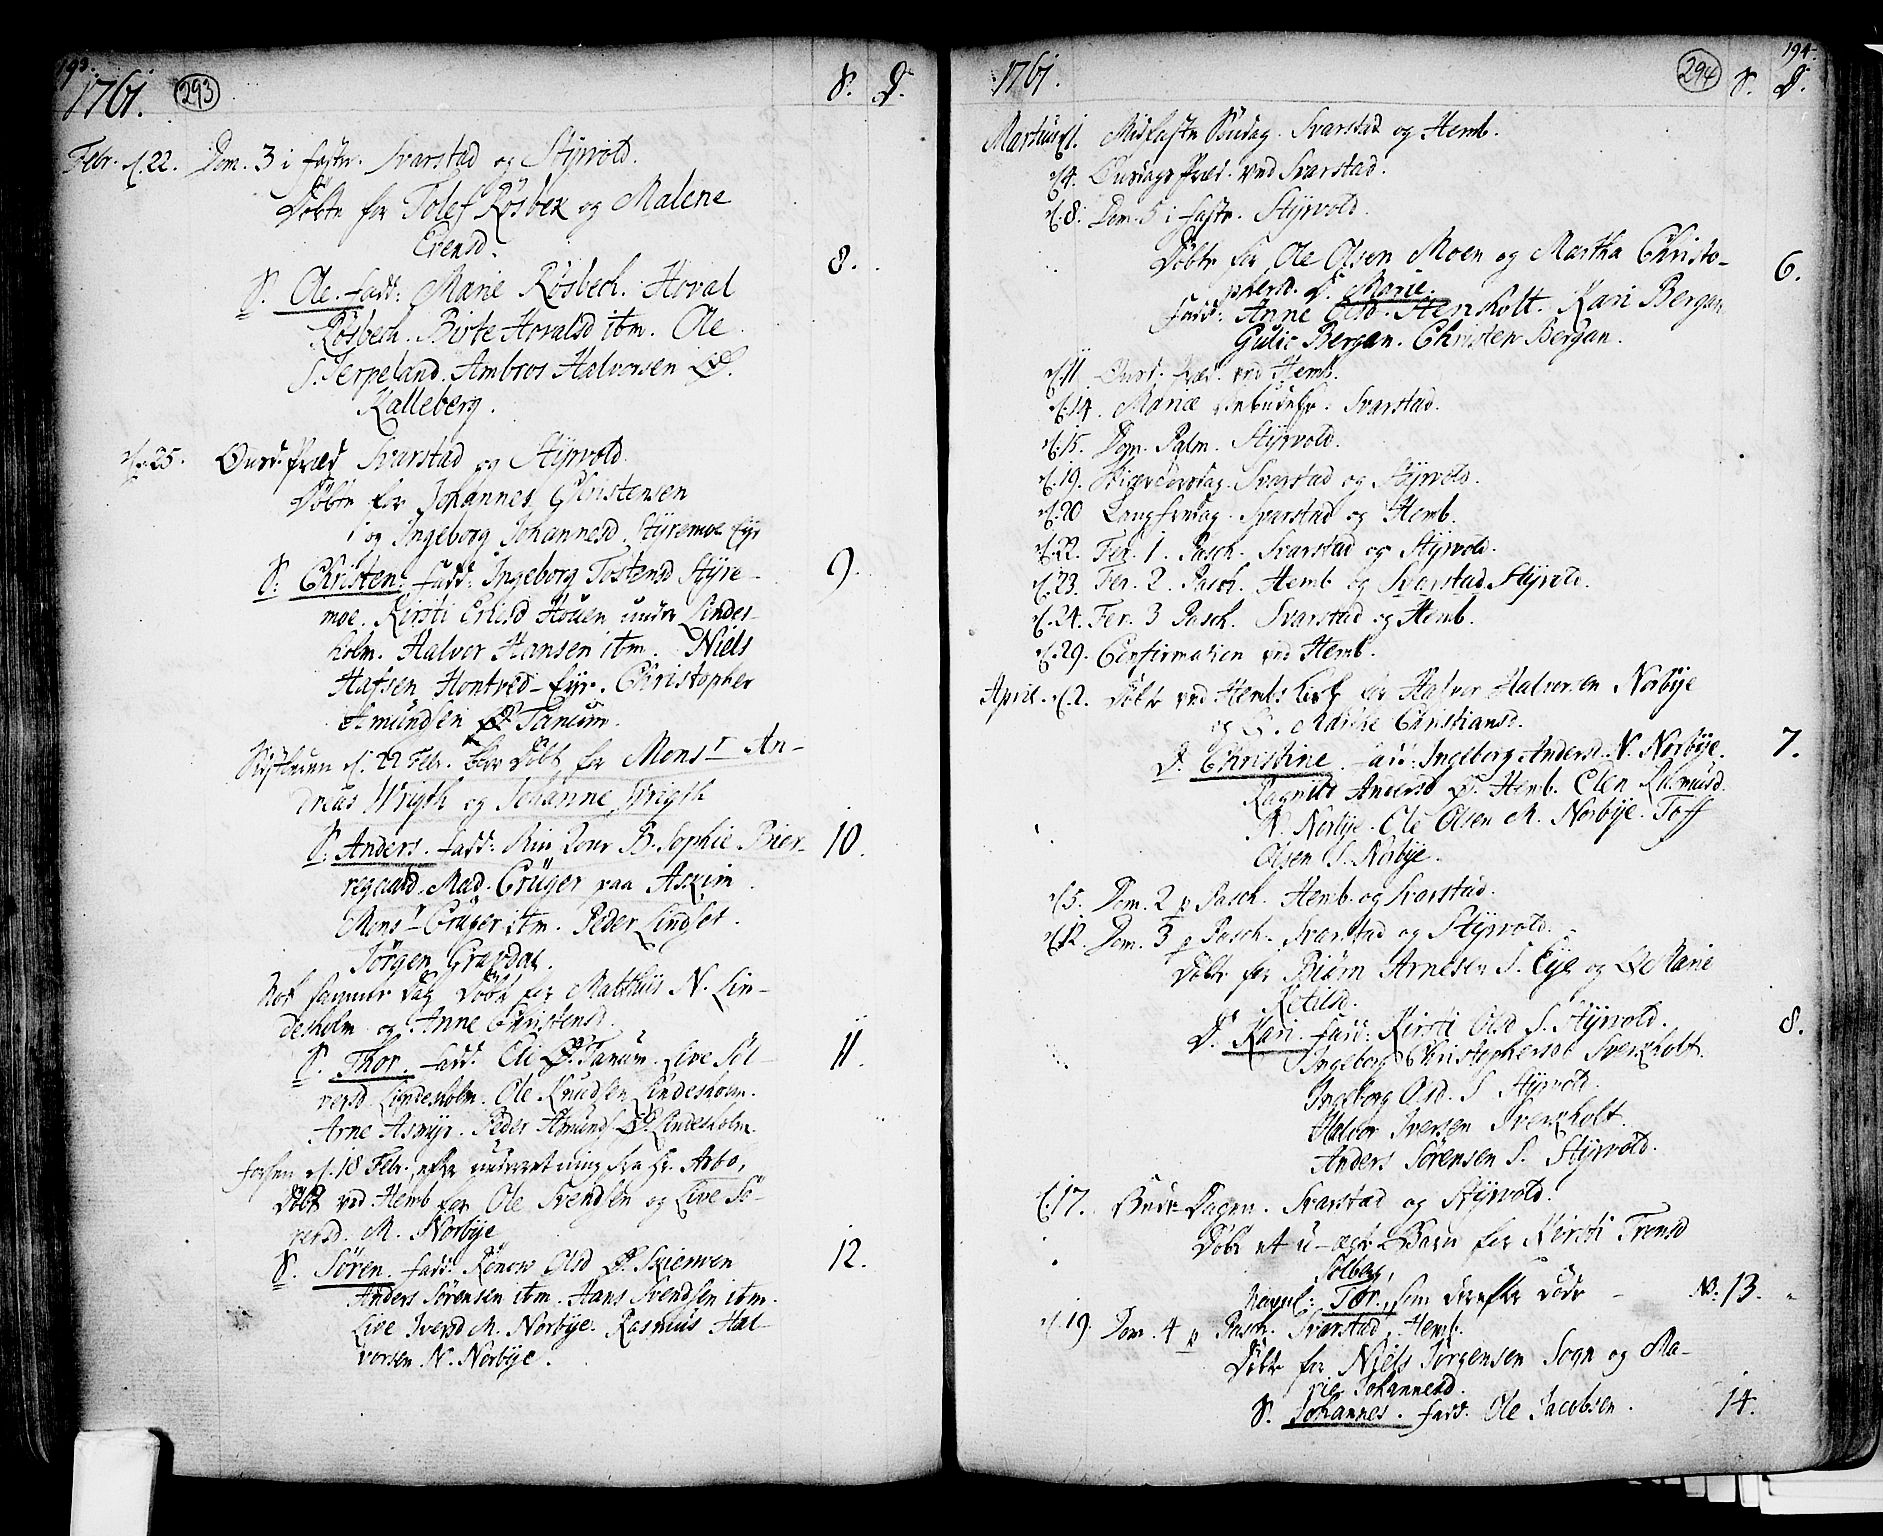 193.
1761. 293 S. D.
Febr. d. 22. Dom. 3 i faste. Svarstad og Styrvold.
Döbte for Tolef Rösbek og Malene
Erensd.
S. Ole. fadd: Marie Rösbech. Hoval 8.
Rösbech. Birte Hovalsd itm. Ole
S. Jerpeland. Ambros Halvorsen Ø.
Kalleberg.
d. 25. Onsd. Præd Svarstad og Styrvold.
Döbte for Johannes Christensen
og Ingeborg Johannesd. Styremoe Eye
S. Christen. fadd: Ingeborg Tostensd Styre- 9.
moe. Kirsti Erlesd Houen under Lindes-
holm. Halvor Hansen itm. Niels
Hafsen Hontved-Eye. Christopher
Amundsen Ø Tanum.
d. 22 Febr. blev Döbt for Monsr An-
dreas Wrigth og Johanne Wrigth
S. Anders. fadd: B. Sophie Bier- 10.
regaard. Mad. Crüger paa Askim
Monsr Crüger itm. Peder Lindset.
Jörgen Gravdal.
Nok samme Dag Döbt for Matthiis N. Lin-
desholm og Anne Christensd.
S. Thor. fadd. Eli Ø. Tanum. Live Söl- 11.
versd. Lindesholm. Ole Knudsen Lindesholm.
Arne Asmyr. Peder Amunds Ø. Lindesholm.
d. 18 Febr. efter underretning fra Hr. Arbo,
Döbt ved Hemb for Ole Svendsen og Live Sö-
rersd. M. Norbye
S. Sören. fadd: Rönow Olsd Ø. Skierven 12.
Anders Sörensen itm. Hans Svendsen itm.
Live Iversd M. Norbye. Rasmus Hal-
vorsen N. Norbye.
194.
1761. 294 S. D.
Martius d. 1. Midfaste Söndag. Svarstad og Hemb.
d. 4. Onsdags Præd. ved Svarstad.
d. 8. Dom. 5 i faste. Styrvold.
Döbte for Ole Olsen Moen og Martha Christo- 6.
phersd. D. Marie.
fadd: Anne Olsd. Henholt. Kari Bergan
Gulic Bergan. Christen Bergan.
d. 11 Onsd. Præd. ved Hemb.
d. 14. Mariæ bebudelse. Svarstad.
d. 15. Dom. Palm. Styrvold.
d. 19. Skiærtorsdag. Svarstad og Styrvold.
d. 20 Langfredag. Svarstad og Hemb.
d. 22. Fer. 1. Pasch. Svarstad og Styrvold.
d. 23. Fer. 2. Pasch. Hemb og Svarstad Styrvold.
d. 24. Fer. 3 Pasch. Svarstad og Hemb.
d. 29. Confirmation ved Hemb.
April. d. 2. Döbte ved Hembs kirk for Halvor Halvorsen Norbye
og Christiansd.
D. Christine. fadd: Ingeborg Andersd. N. Norbye. 7.
Ragnild Andersd Ø. Hemb. Elen Rasmusd.
N. Norbye. Ole Olsen M. Norbye. Toff
Olsen S. Norbye.
d. 5. Dom. 2 p Pasch. Hemb. og Svarstad.
d. 12. Dom. 3 p Pasch. Svarstad og Styrvold.
Döbte for Biörn Arnesen S. Eye og Marie
Ketilsd.
D. Kari. fadd: Kirsti Olsd S. Styrvold. 8.
Ingeborg Christophersd Svenholt.
Ingeborg Olsd. S Styrvold.
Halvor Iversen Svenholt.
Anders Sörensen S. Styrvold.
d. 17. Bede-Dagen. Svarstad og Styrvold.
Döbt et u-ægte Barn for Kirsti Tronsd
Solberg,
Navnl: Tor, som derefter döde - No: 13. "
d. 19. Dom. 4 p Pasch. Svarstad, Hemb.
Döbte for Niels Jörgensen Sogn og Ma-
rie Johannesd.
S. Johannes. fadd. Ole Jacobsen. 14.